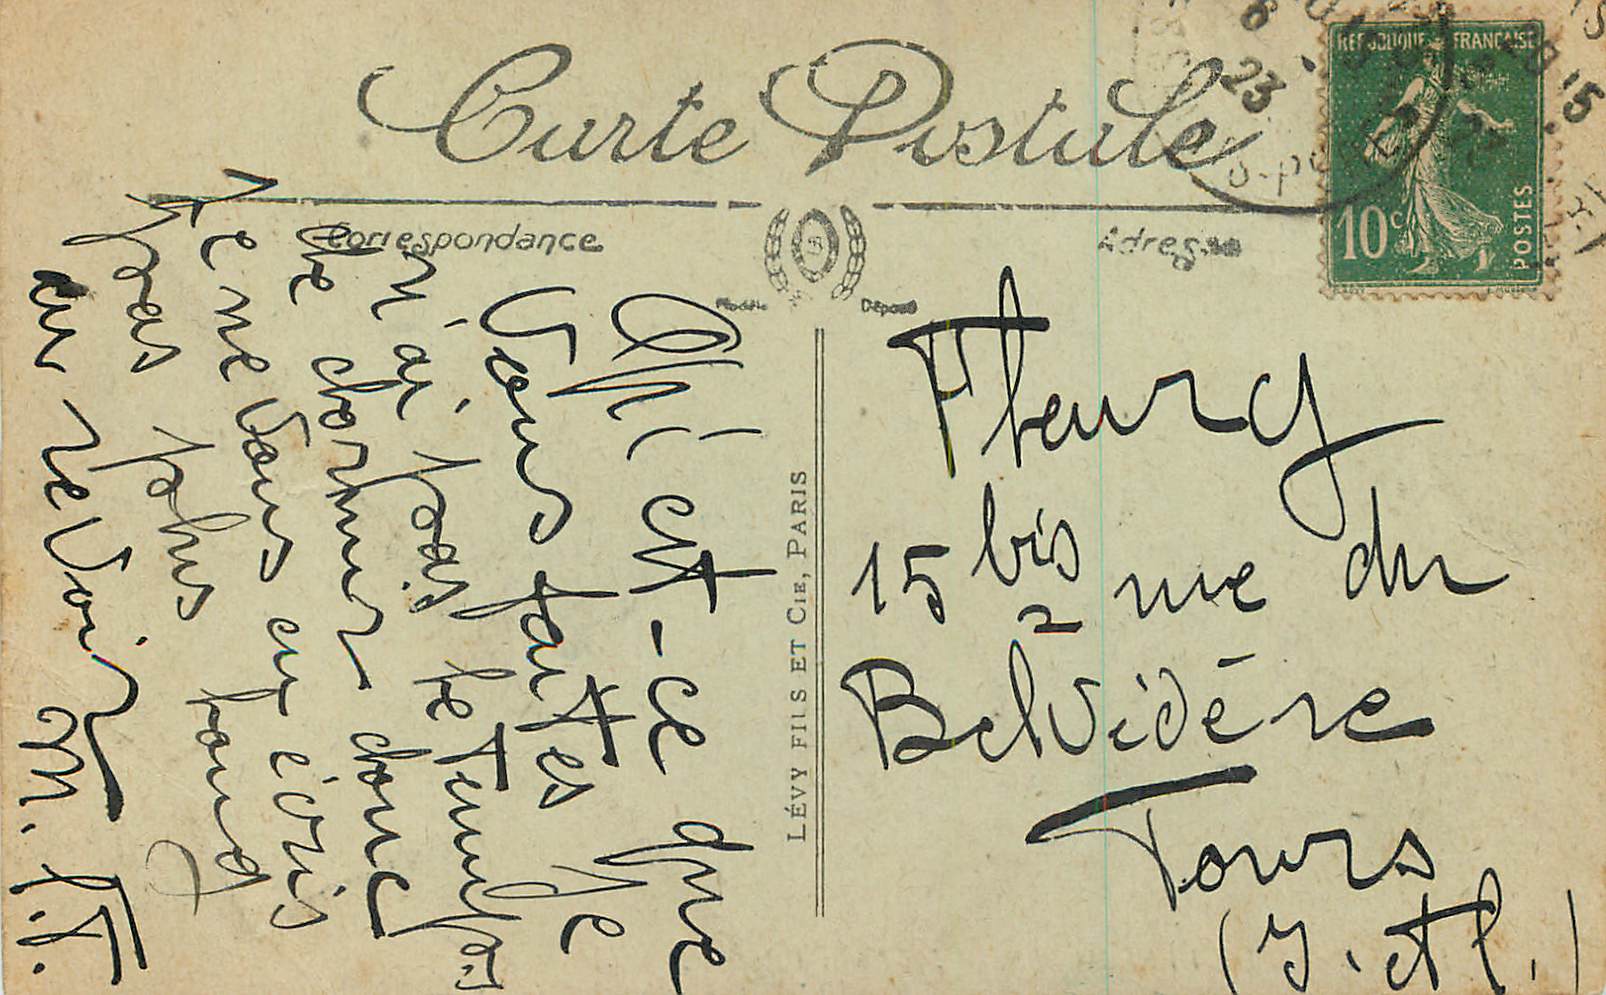 Carte Postale
Correspondance
Adresse
Modèle Déposé
RÉPUBLIQUE FRANÇAISE
10c
POSTES
23
15
LÉVY FILS ET CIE, PARIS
Qu'est-ce que
Vous faites Je
n'ai pas le temps.
de dormir donc
Je ne Vous en écris
pas plus long
au reVoir M.
Fleury
15 bis rue du
Belvédère
Tours
(I. et L.)